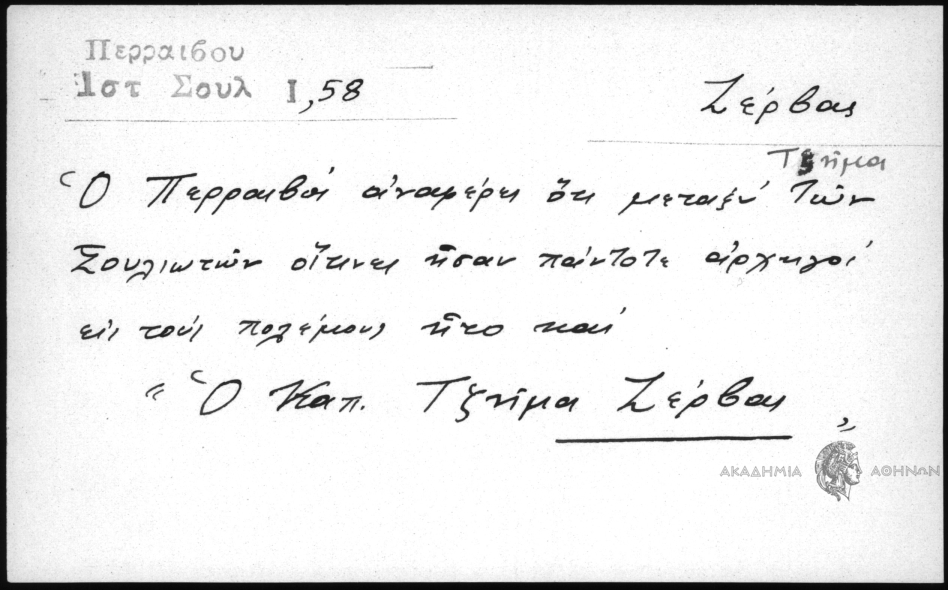 Περραιβου
Ιστ Σουλ Ι, 58
Ζέρβας
Τζῆμα
Ὁ Περραιβός ἀναφέρει ὅτι μεταξύ τῶν
Σουλιωτῶν οἵτινες ἦσαν πάντοτε ἀρχηγοί
εἰς τούς πολέμους ἦτο καί
“ Ὁ Καπ. Τζῆμα Ζέρβας „
ΑΚΑΔΗΜΙΑ ΑΘΗΝΩΝ